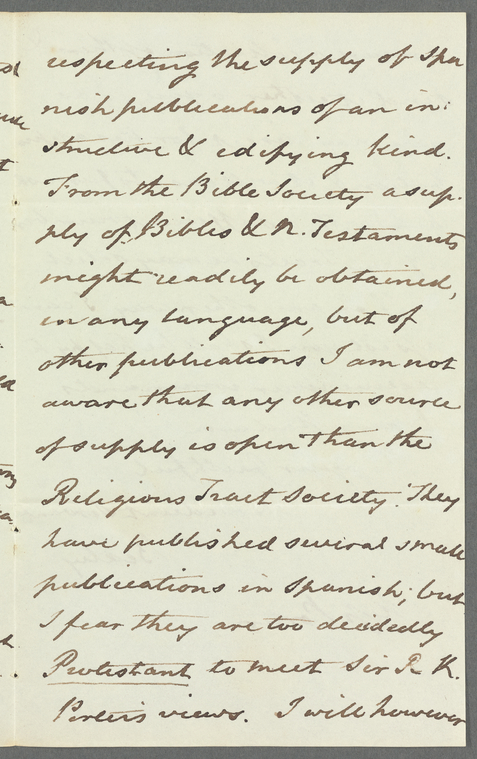 respecting the supply of Spa
nish publications of an in:
structive & edifying kind.
From the Bible Society a sup-
ply of Bibles & N. Testaments
might readily be obtained,
in any language, but of
other publications I am not
aware that any other source
of supply is open than the
Religious Tract Society. They
have published several small
publications in Spanish; but
I fear they are too decidedly
Protestant to meet Sir R. K.
Porter's views. I will however